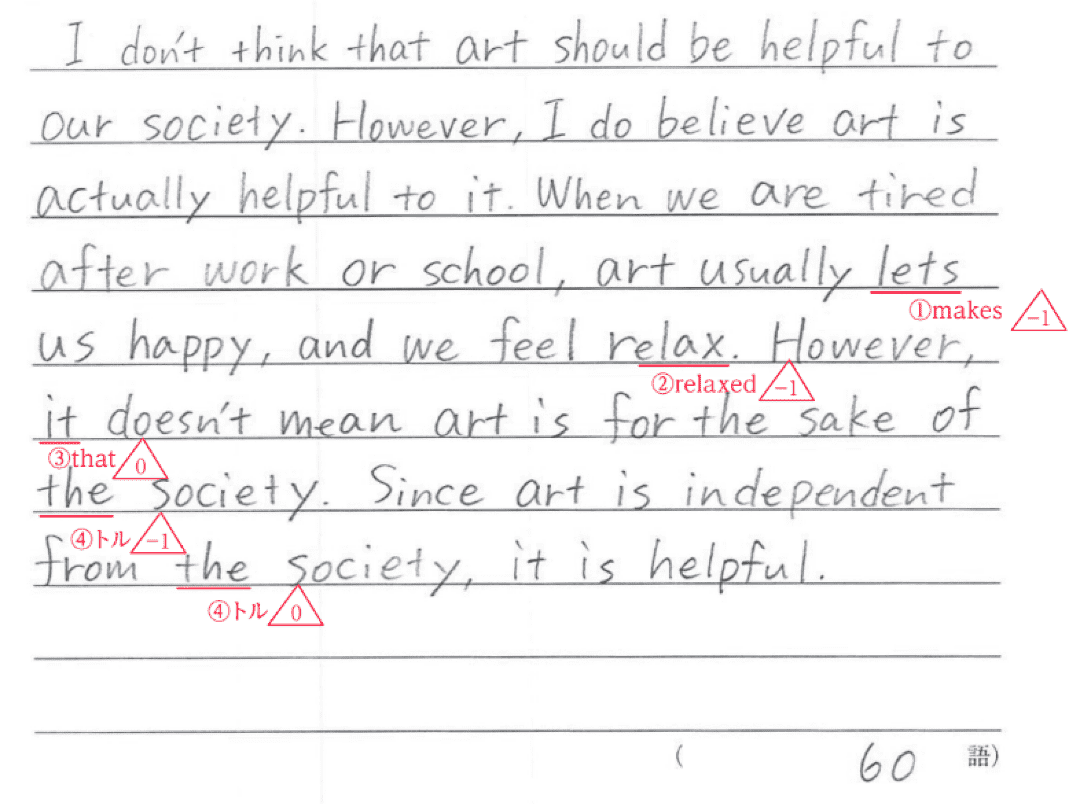 I don't think that art should be helpful to
our society. However, I do believe art is
actually helpful to it. When we are tired
after work or school, art usually lets
①makes -1
us happy, and we feel relax. However,
②relaxed -1
it doesn't mean art is for the sake of
③that 0
the society. Since art is independent
④トル -1
from the society, it is helpful.
④トル 0
( 60 語)